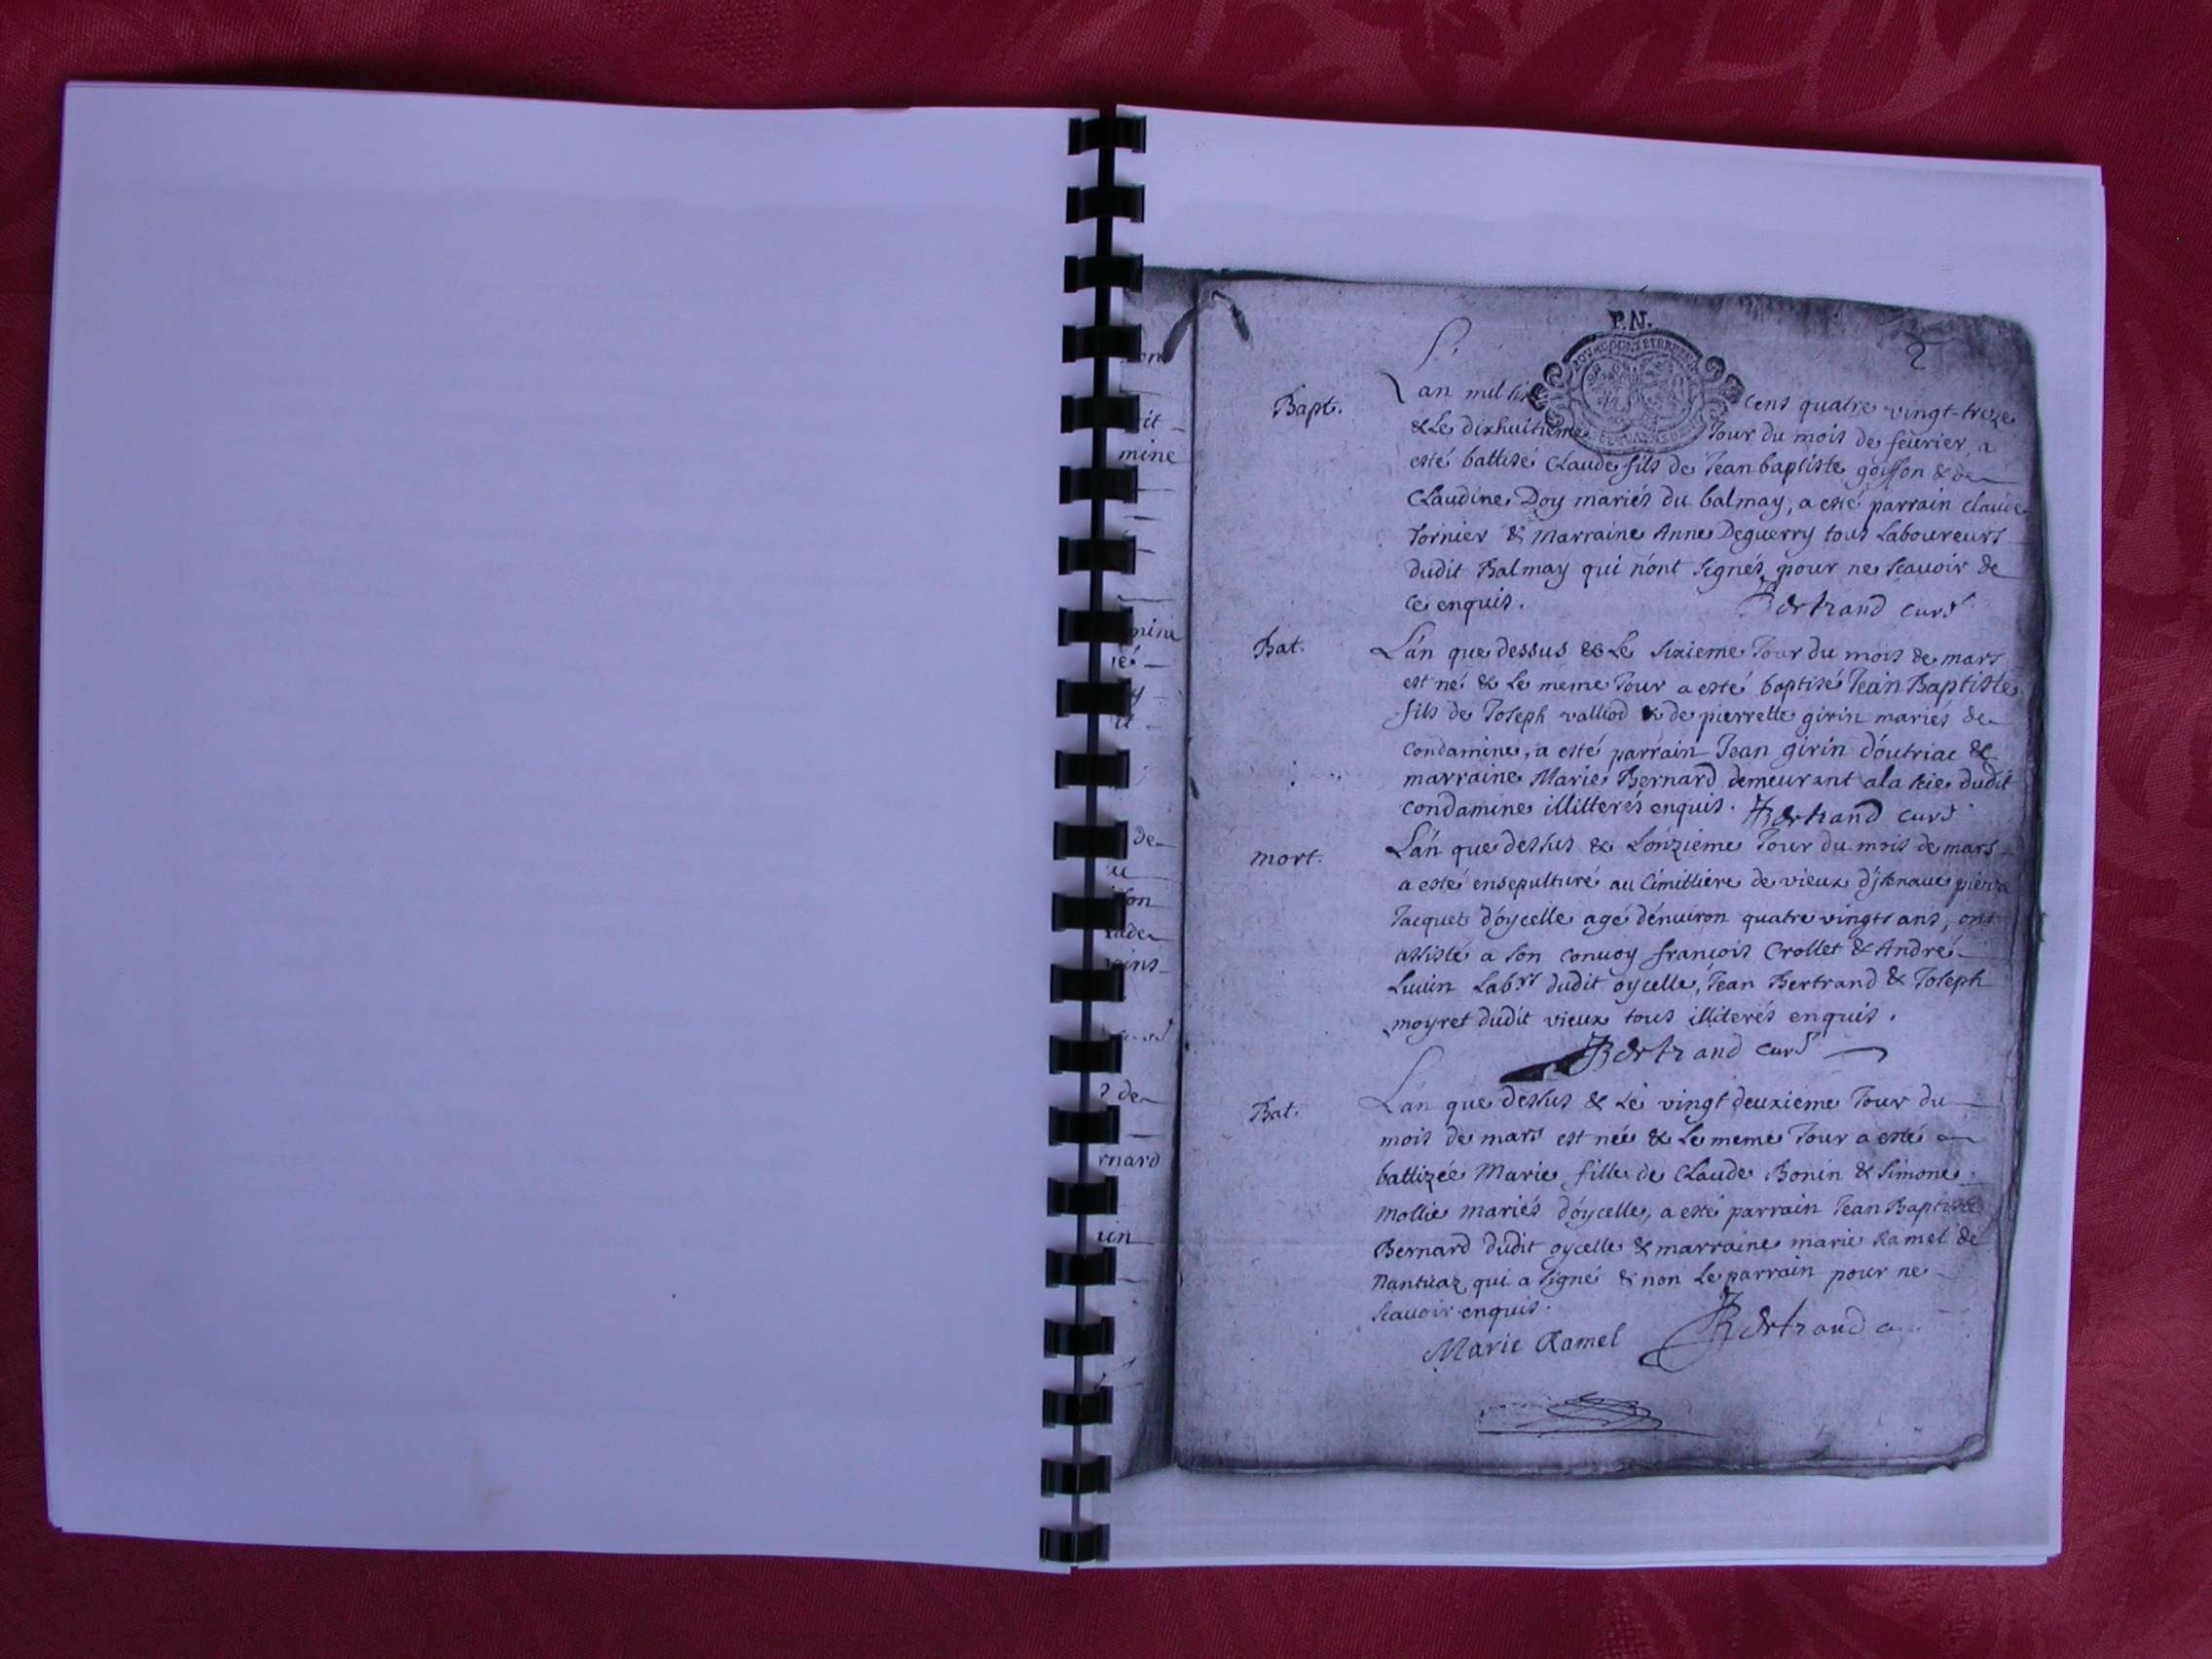 P.N.
2
Bapt.
Lan mil six cens quatre vingt-treze
& Le dixhuitieme Jour du mois de feurier, a
esté battisé Claude fils de Jean baptiste goiffon & de
Claudine Doy mariés du balmay, a esté parrain claude
Tornier & Marraine Anne Deguerry tous Laboureurs
dudit Balmay qui n'ont signés pour ne scauoir de
ce enquis. Bertrand curé
Bat.
L'an que dessus & Le sixieme Jour du mois de mars
est né & Le meme Jour a esté baptisé Jean Baptiste
fils de Joseph valliod & de pierrette girin mariés de
Condamine, a esté parrain Jean girin d'outriac &
marraine Marie Bernard demeurant a la scie dudit
Condamine illitterés enquis. Bertrand curé
mort.
L'an que dessus & L'onzieme Jour du mois de mars
a esté ensepulturé au Cimittiere de vieux d'jsenaue pierre
Jacquet d'oycelle agé d'enuiron quatre vingts ans, ont
assisté a son conuoy françois Crollet & André
Luuin Lab.rs dudit oycelle, Jean Bertrand & Joseph
moyret dudit vieux tous illiterés enquis.
Bertrand curé
Bat.
L'an que dessus & Le vingt deuxieme Jour du
mois de mars est née & Le meme Jour a esté
battizée Marie fille de Claude Bonin & Simone
Mollie mariés d'oycelle, a esté parrain Jean Baptiste
Bernard dudit oycelle & marraine marie Ramel de
Nantuaz qui a signé & non Le parrain pour ne
scauoir enquis.
Marie Ramel Bertrand
mine
mine
de
son
de
rnard